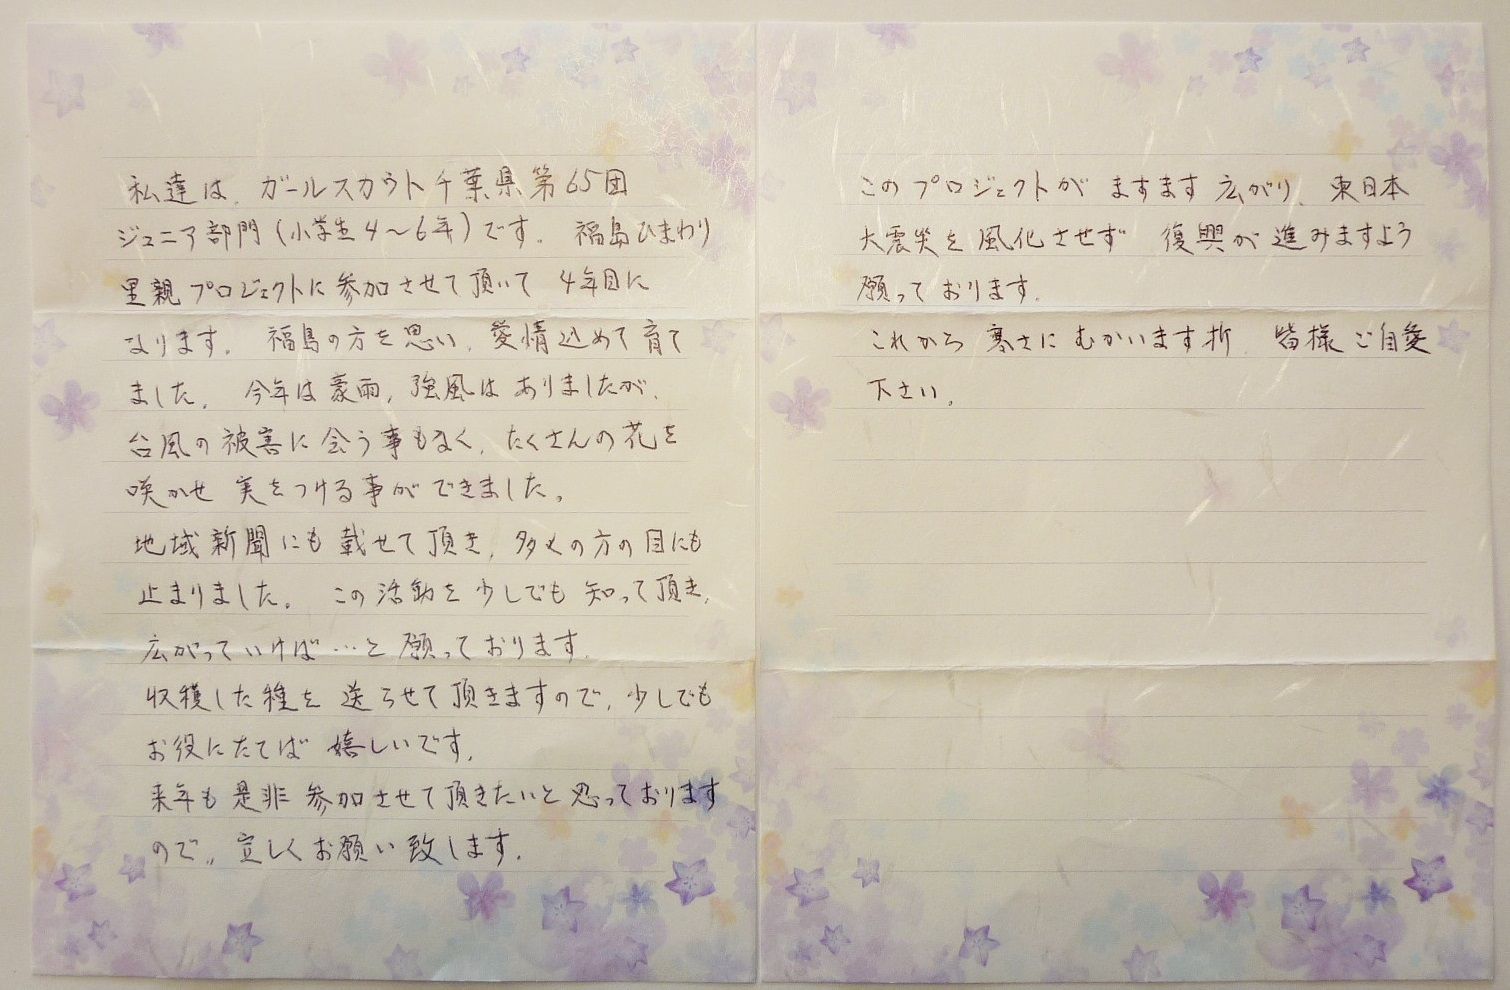 私達は、ガールスカウト千葉県第65団
ジュニア部門(小学生4〜6年)です。 福島ひまわり
里親プロジェクトに参加させて頂いて 4年目に
なります。 福島の方を思い、愛情込めて育て
ました。 今年は豪雨,強風はありましたが、
台風の被害に会う事もなく、たくさんの花を
咲かせ 実をつける事ができました。
地域新聞にも載せて頂き、多くの方の目にも
止まりました。 この活動を少しでも知って頂き、
広がっていけば…と願っております。
収穫した種を送らせて頂きますので、少しでも
お役にたてば 嬉しいです。
来年も是非参加させて頂きたいと思っております
ので、宜しくお願い致します。
このプロジェクトがますます広がり、東日本
大震災を風化させず 復興が進みますよう
願っております。
これから寒さにむかいます折、皆様ご自愛
下さい。